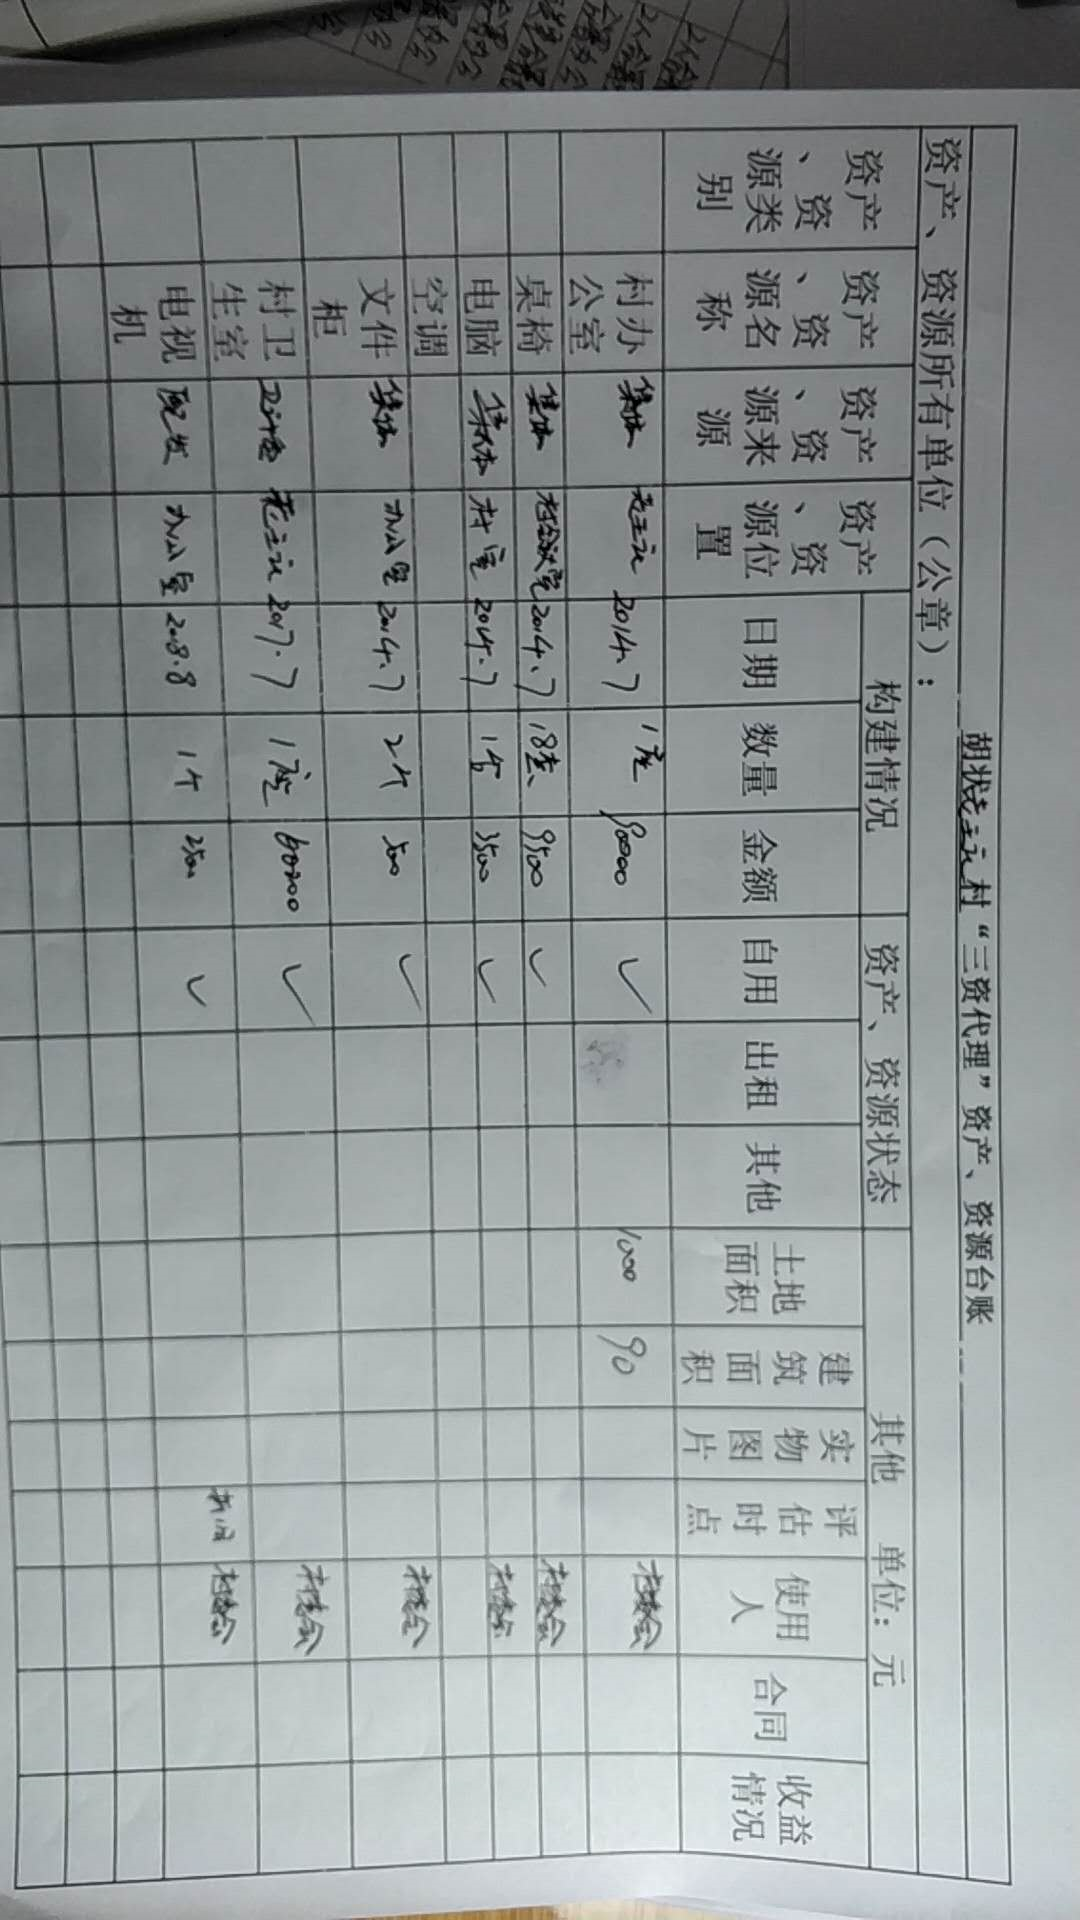 胡状老王元村“三资代理”资产、资源台账
资产、资源所有单位（公章）： 单位：元
资产、资源类别 资产、资源名称 资产、资源来源 资产、资源位置 构建情况 资产、资源状态 其他
日期 数量 金额 自用 出租 其他 土地面积 建筑面积 实物图片 评估时点 使用人 合同 收益情况
村办公室 集体 老王元 2014.7 1座 90000 ✓ 1000 90 村委会
桌椅 集体 村会议室 2014.7 18套 9500 ✓ 村委会
电脑 集体 村室 2014.7 1台 3500 ✓ 村委会
空调
文件柜 集体 办公室 2014.7 2个 500 ✓ 村委会
村卫生室 卫计委 老王元 2017.7 1座 60000 ✓ 村委会
电视机 配发 办公室 2018.8 1个 2500 ✓ 村委会